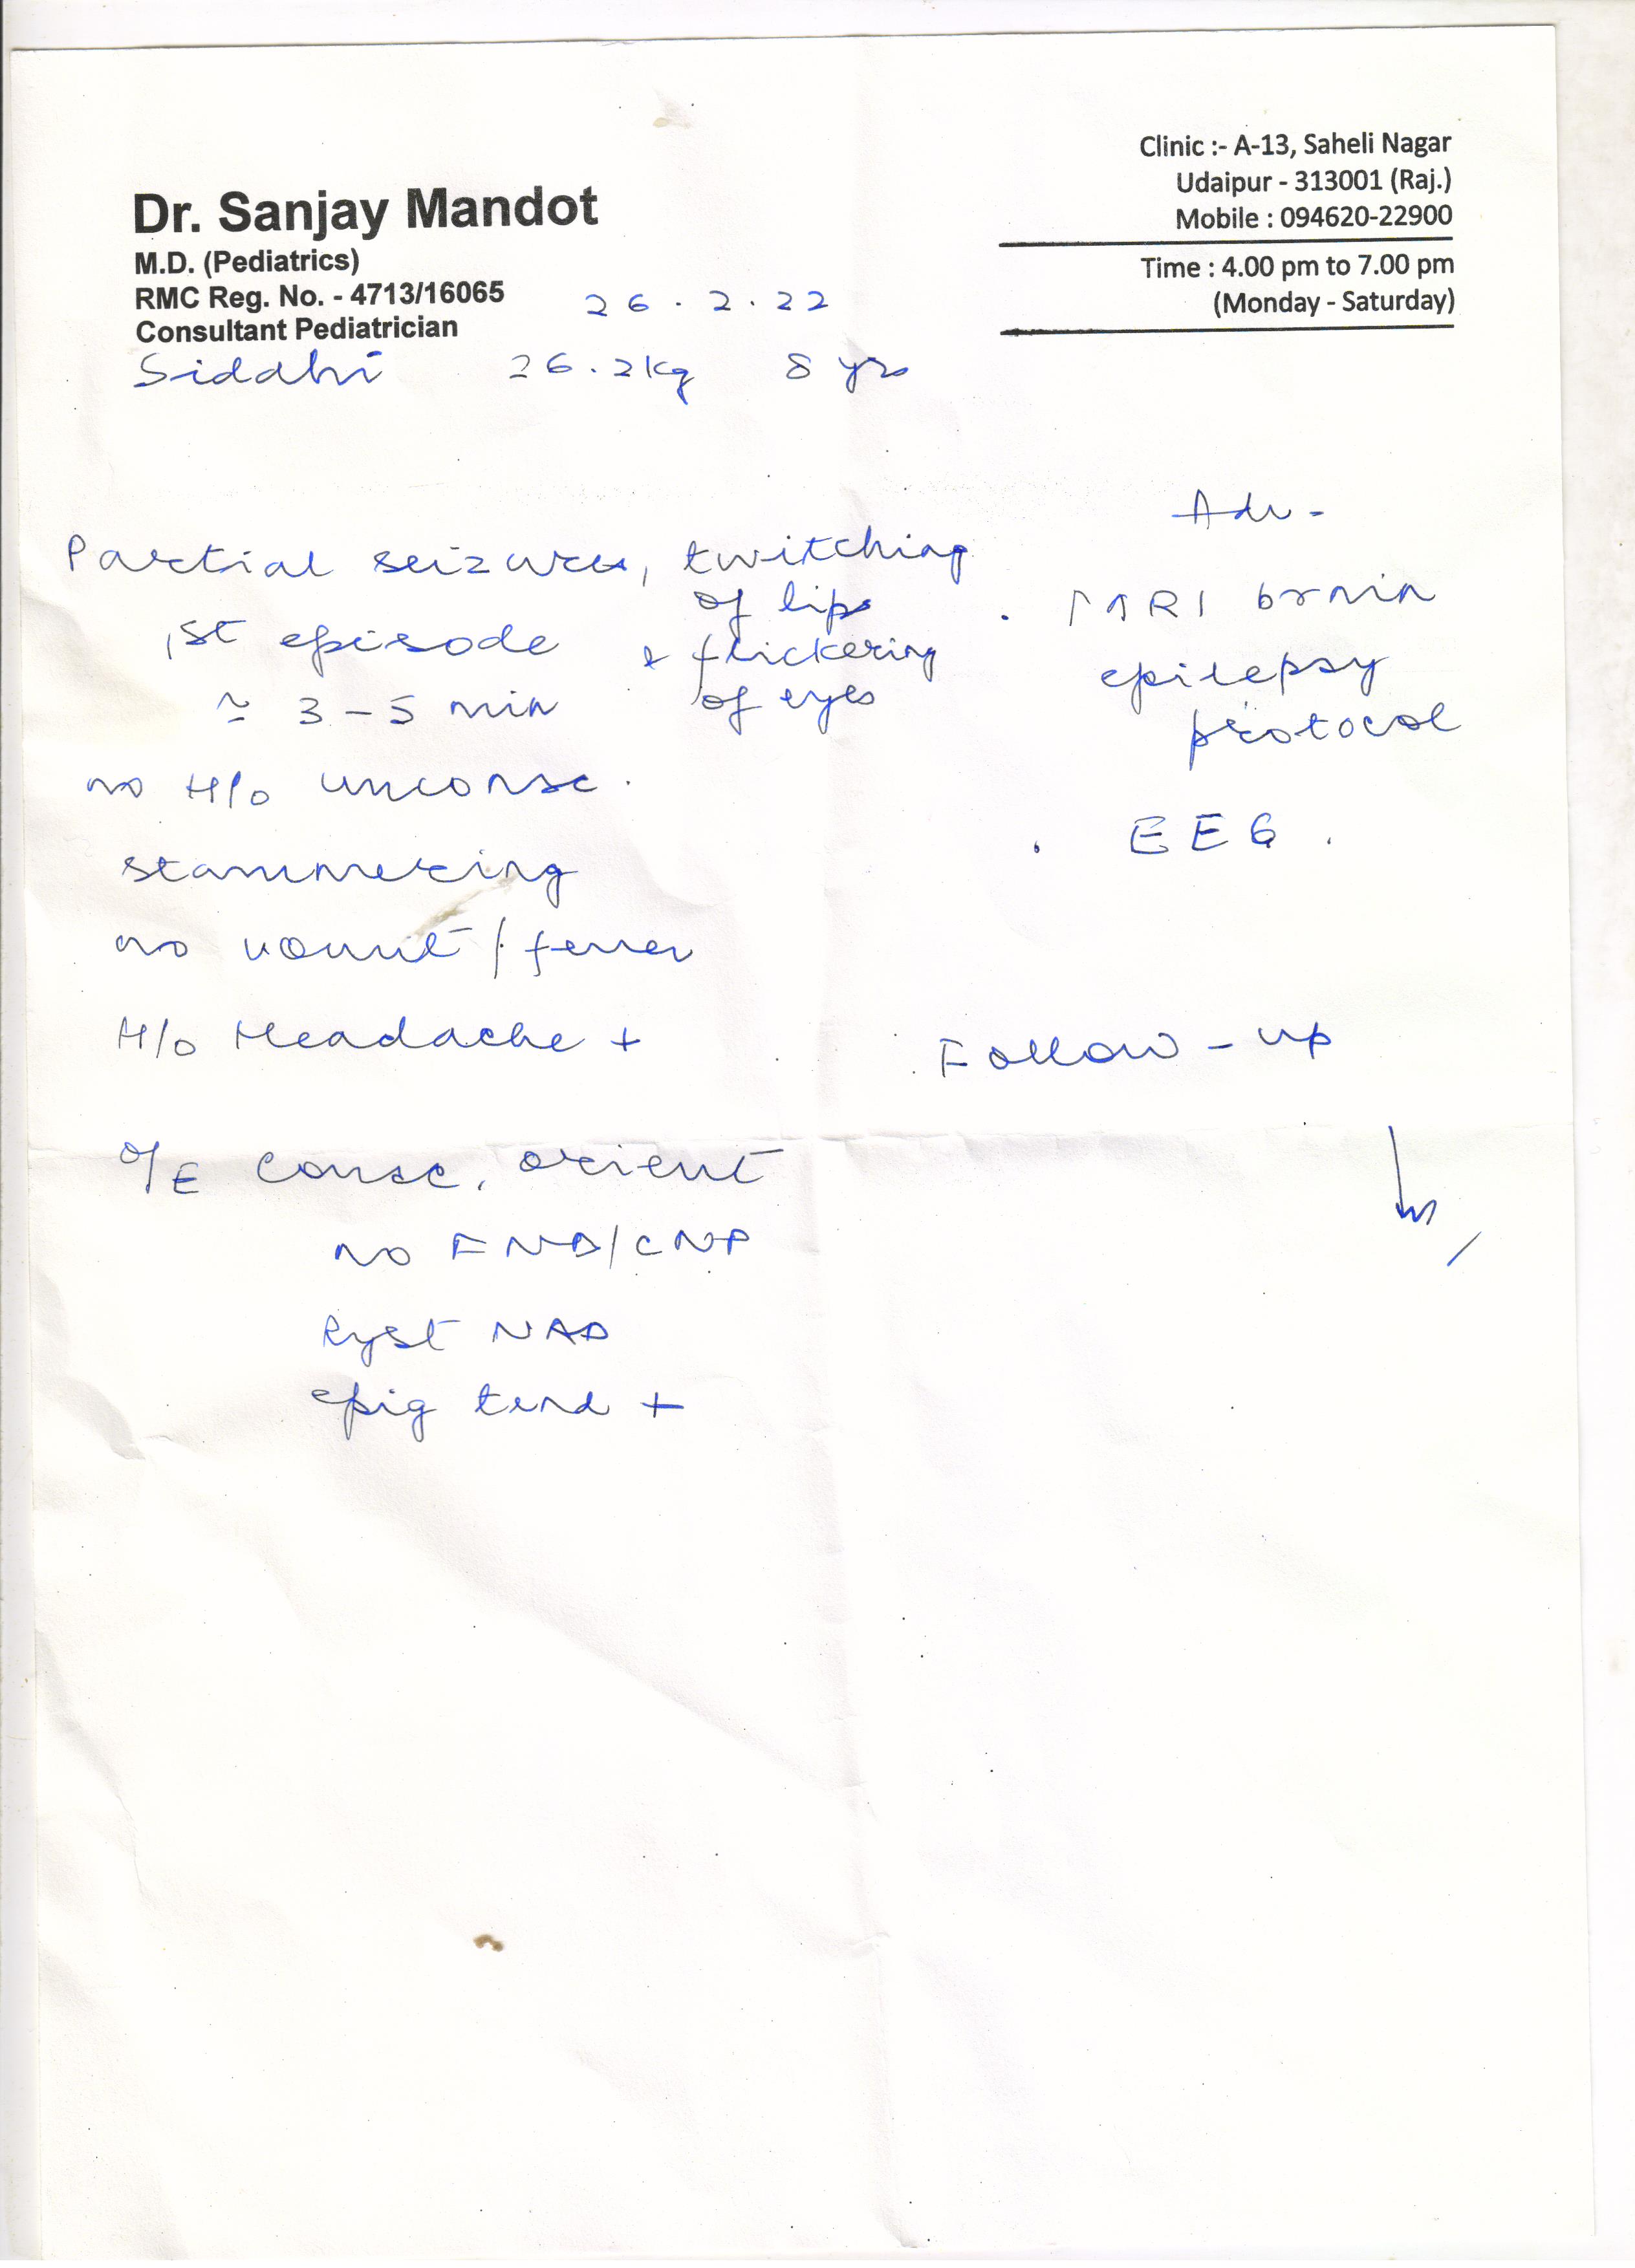 Dr. Sanjay Mandot
M.D. (Pediatrics)
RMC Reg. No. - 4713/16065
Consultant Pediatrician
Clinic :- A-13, Saheli Nagar
Udaipur - 313001 (Raj.)
Mobile : 094620-22900
Time : 4.00 pm to 7.00 pm
(Monday - Saturday)
26.2.22
Siddhi 26.2kg 8 yrs
Partial seizures, twitching
of lips
& flickering
of eyes
1st episode
≃ 3-5 min
no H/o unconsc.
stammering
no vomit / fever
H/o Headache +
O/E consc. orient
no FND/CNP
Ryst NAD
epig tend +
Adv-
. MRI brain
epilepsy
protocol
. EEG.
Follow-up